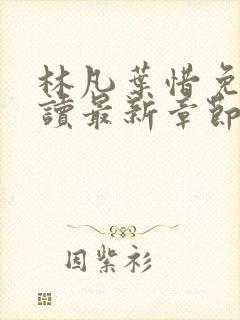 林凡葉惜免
讀最新章節
因紫衫